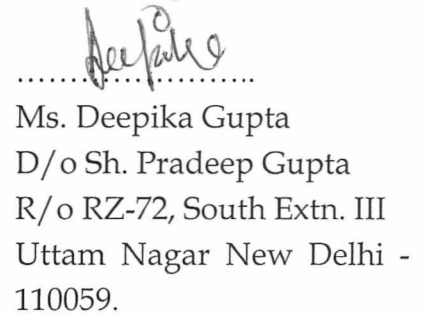 Deepika
........................
Ms. Deepika Gupta
D/o Sh. Pradeep Gupta
R/o RZ-72, South Extn. III
Uttam Nagar New Delhi -
110059.